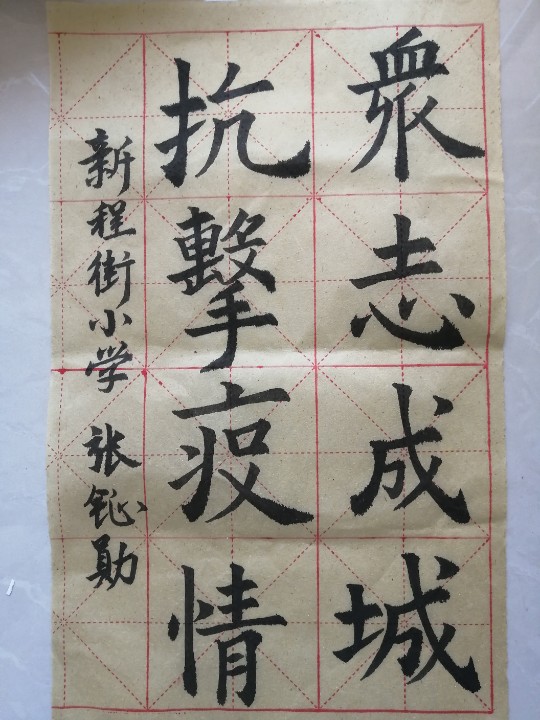 眾志成城
抗擊疫情
新程街小学 张钲勋